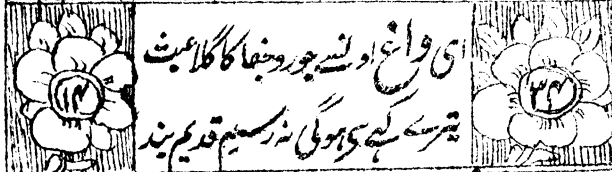 ۳۴
ای داغ اونسے جور و جفا کا گلا عبث
تیرے کہے سی ہوگی نہ رسم قدیم بند
۱۴